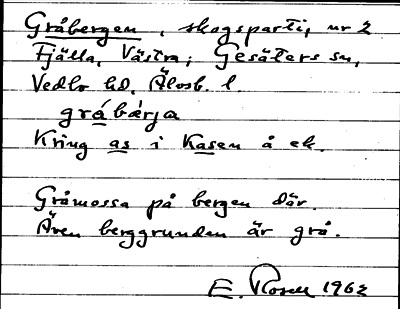 Gråbergen, skogsparti, nr 2
Fjälla, Västra; Gesäters sn,
Vedbo hd, Älvsb. l.
gråbärja
Kring as i Kasen å ek.
Gråmossa på bergen där.
Även berggrunden är grå.
E. Rosell 1962